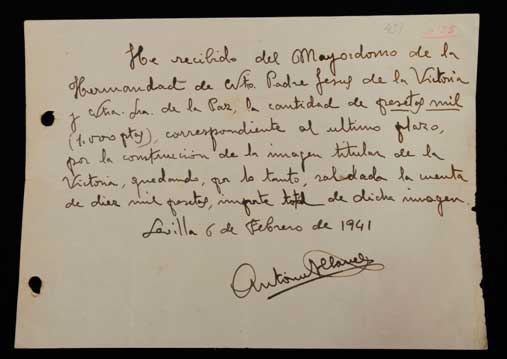 He recibido del Mayordomo de la
Hermandad de Ntro. Padre Jesus de la Victoria
y Ntra. Sra. de la Paz, la cantidad de pesetas mil
(1.000 pts), correspondiente al ultimo plazo,
por la construcción de la imagen titular de la
Victoria, quedando, por lo tanto, saldada la cuenta
de diez mil pesetas, importe total de dicha imagen.
Sevilla 6 de Febrero de 1941